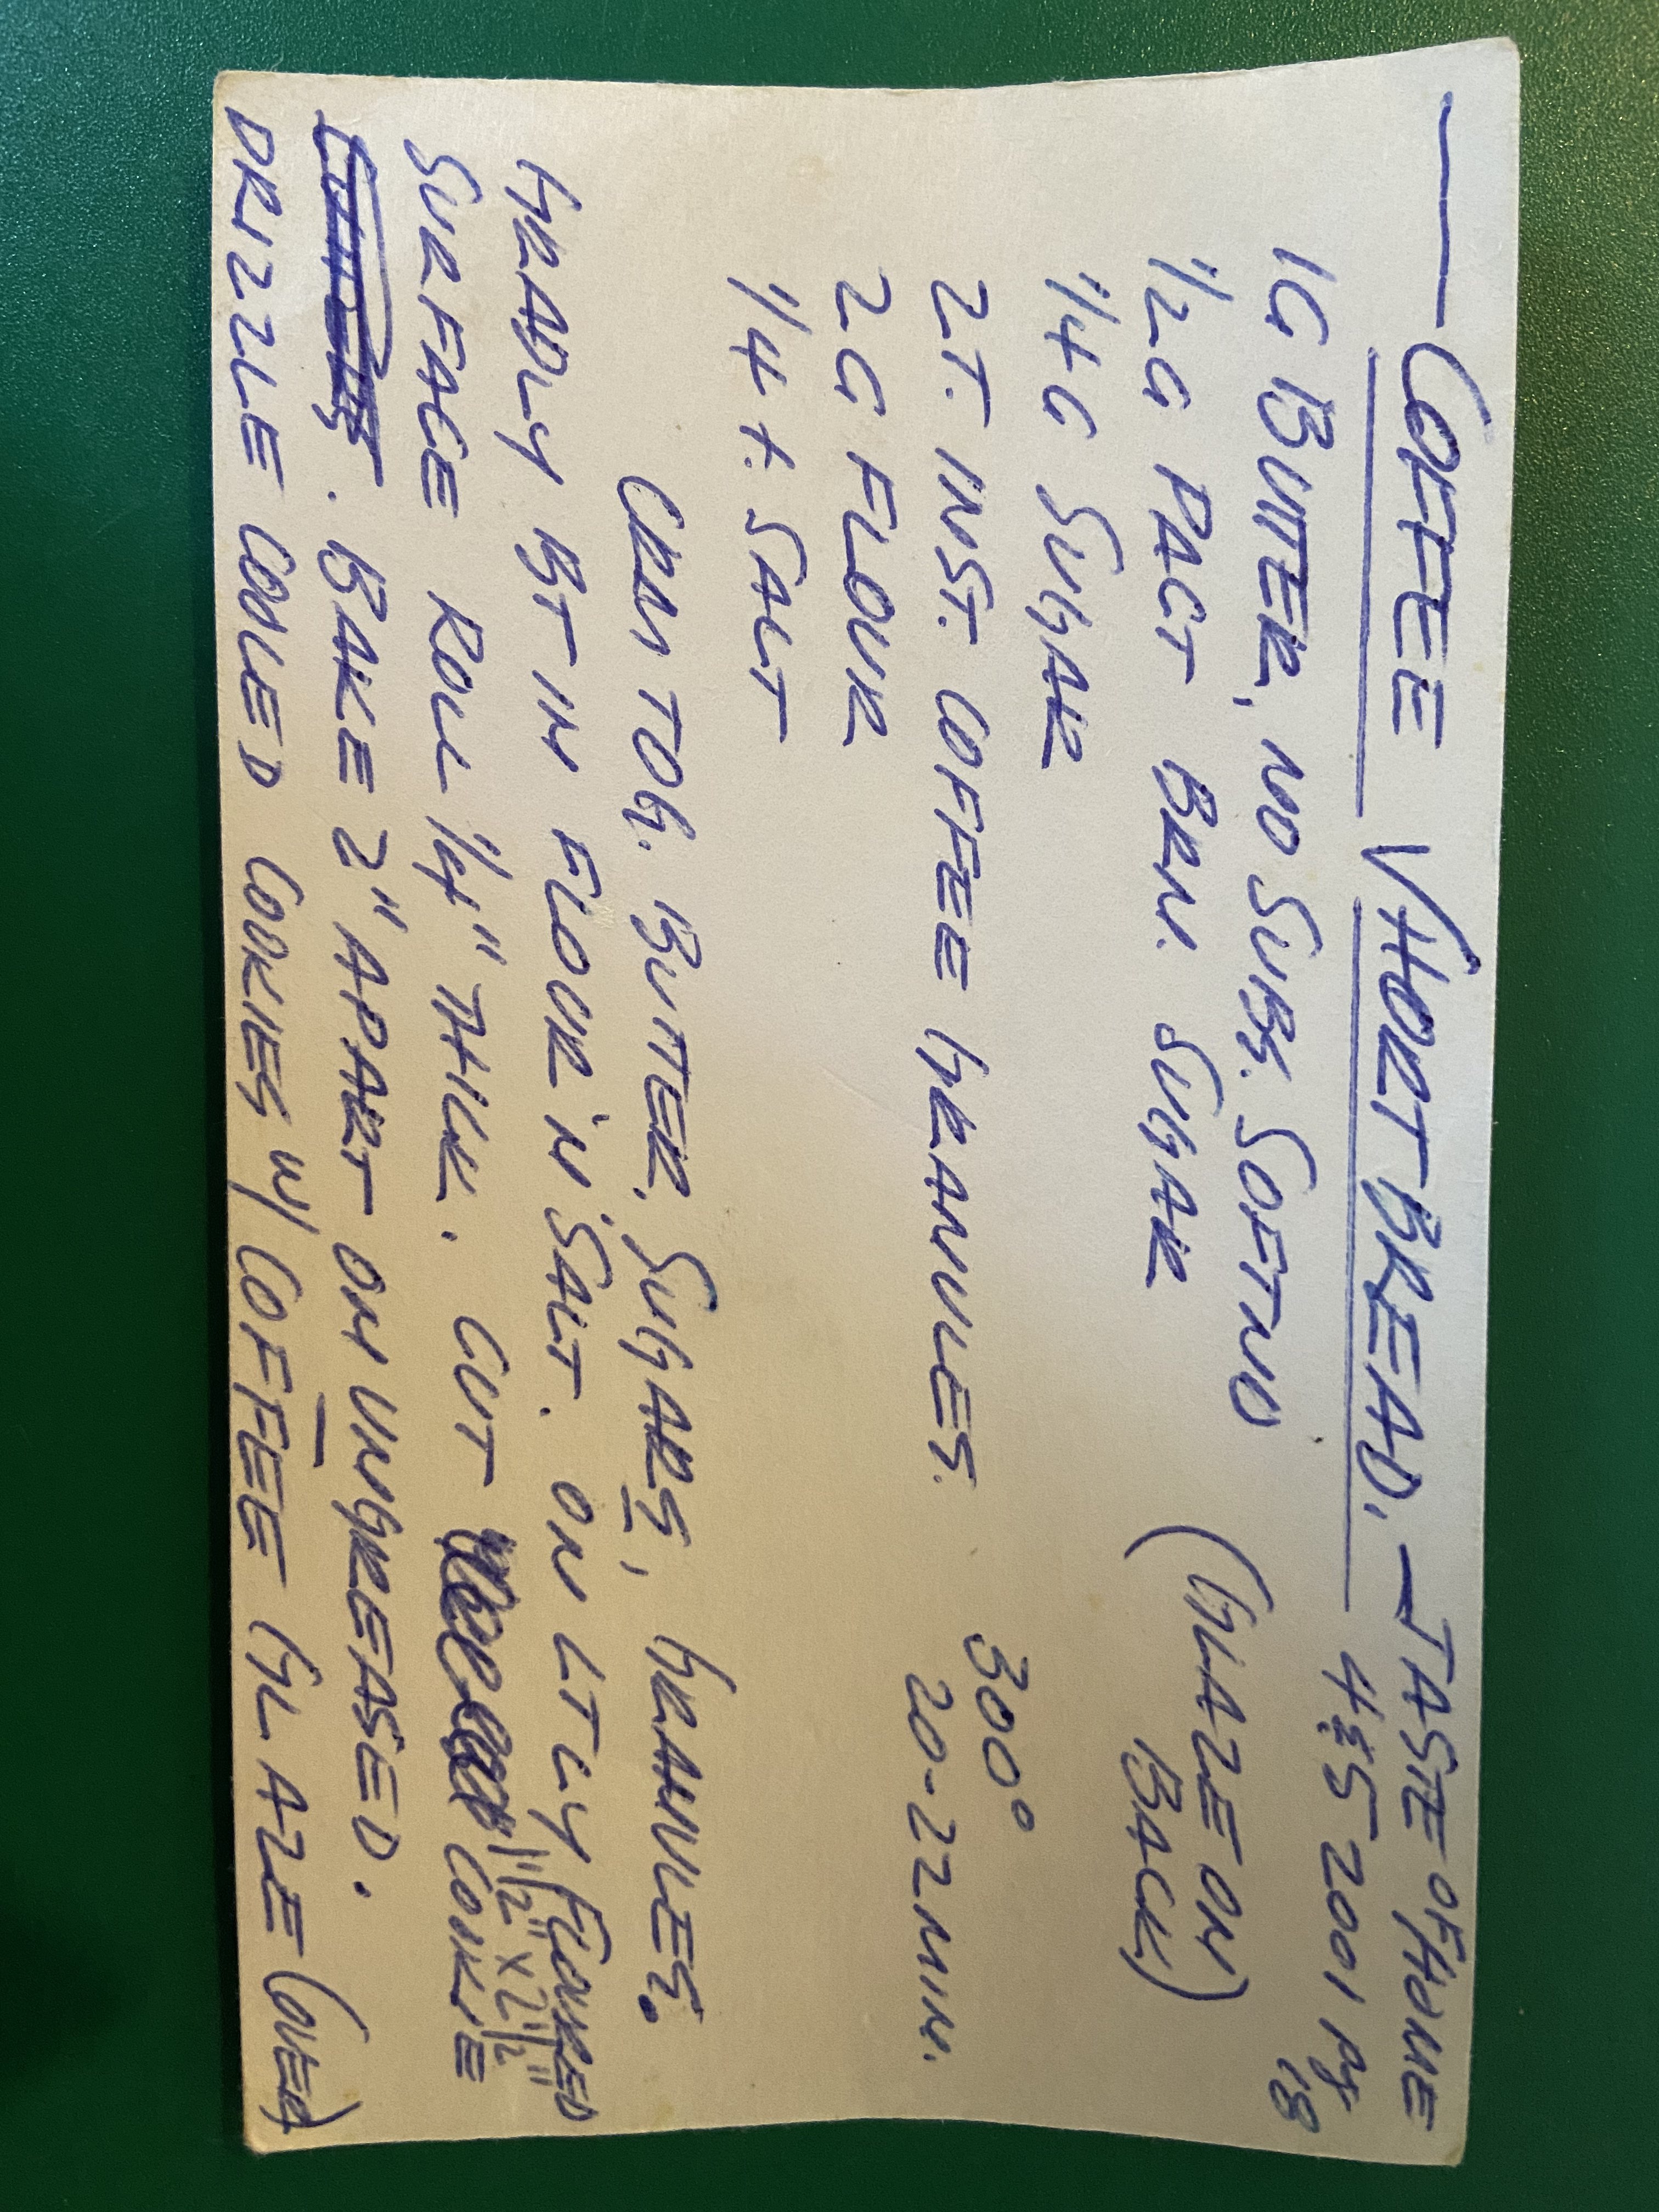 — COFFEE SHORTBREAD. — TASTE OF HOME
4&5 2001 pg 18
1 C BUTTER, NO SUBS. SOFTND
1/2 C PACT BRN. SUGAR (GLAZE ON
1/4 C SUGAR BACK)
2 T. INST. COFFEE GRANULES. 300°
2 C FLOUR 20-22 MIN.
1/4 t. SALT
CRM TOG. BUTTER, SUGARS, GRANULES.
GRADLY BT IN FLOUR 'N SALT. ON LTLY FLOURED
SURFACE ROLL 1/4" THICK. CUT 1 1/2" x 2 1/2" COOKIE
. BAKE 2" APART ON UNGREASED.
DRIZZLE COOLED COOKIES W/ COFFEE GLAZE (OVER)